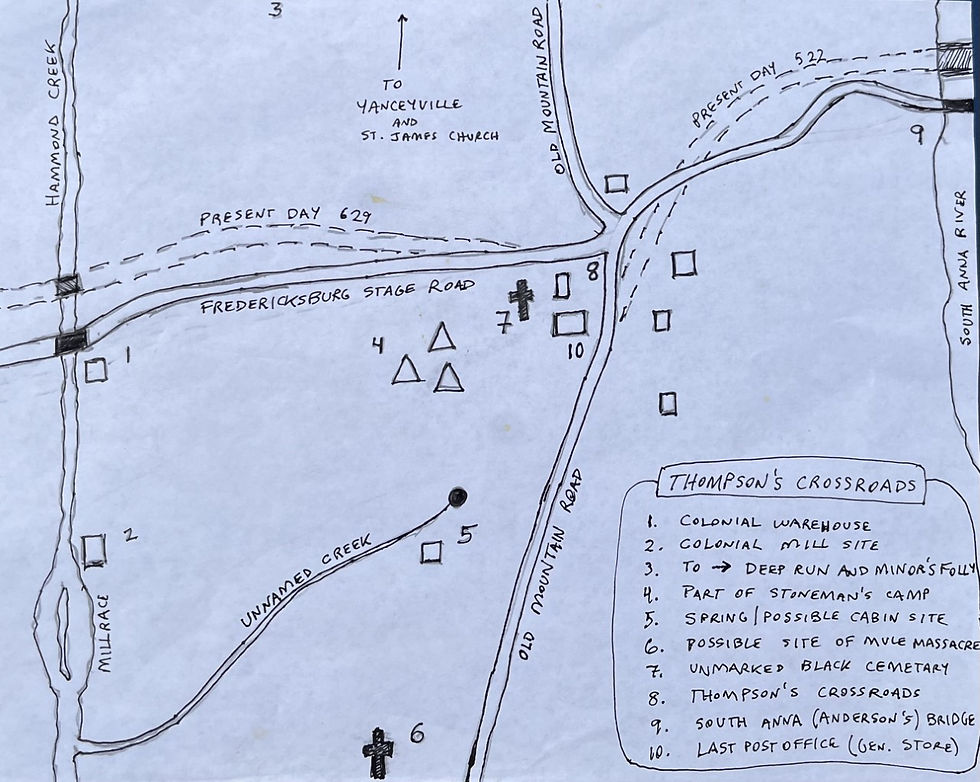 3
TO
YANCEYVILLE
AND
ST. JAMES CHURCH
HAMMOND CREEK
OLD MOUNTAIN ROAD
PRESENT DAY 522
9
SOUTH ANNA RIVER
PRESENT DAY 629
FREDERICKSBURG STAGE ROAD
8
7
10
1
4
2
5
UNNAMED CREEK
MILLRACE
OLD MOUNTAIN ROAD
6
THOMPSON'S CROSSROADS
1. COLONIAL WAREHOUSE
2. COLONIAL MILL SITE
3. TO → DEEP RUN AND MINOR'S FOLLY
4. PART OF STONEMAN'S CAMP
5. SPRING/POSSIBLE CABIN SITE
6. POSSIBLE SITE OF MULE MASSACRE
7. UNMARKED BLACK CEMETARY
8. THOMPSON'S CROSSROADS
9. SOUTH ANNA (ANDERSON'S) BRIDGE
10. LAST POST OFFICE (GEN. STORE)